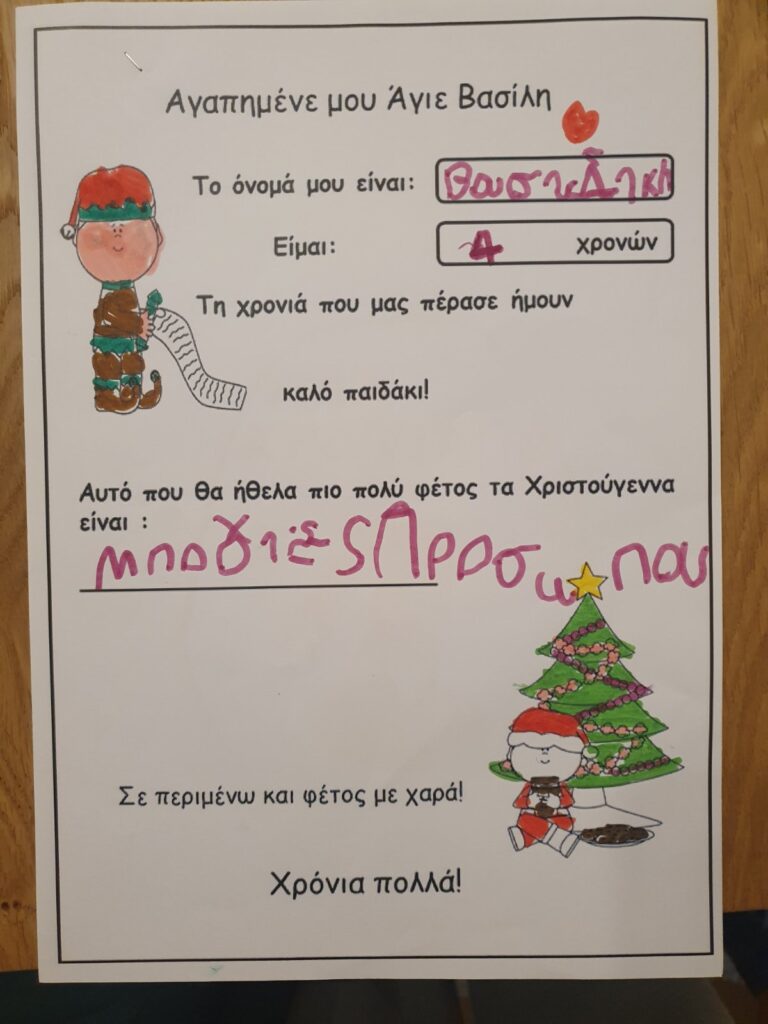 Αγαπημένε μου Άγιε Βασίλη
Το όνομά μου είναι:
Είμαι: 4 χρονών
Τη χρονιά που μας πέρασε ήμουν
καλό παιδάκι!
Αυτό που θα ήθελα πιο πολύ φέτος τα Χριστούγεννα
είναι :
μπογιές Προσωπου
Σε περιμένω και φέτος με χαρά!
Χρόνια πολλά!